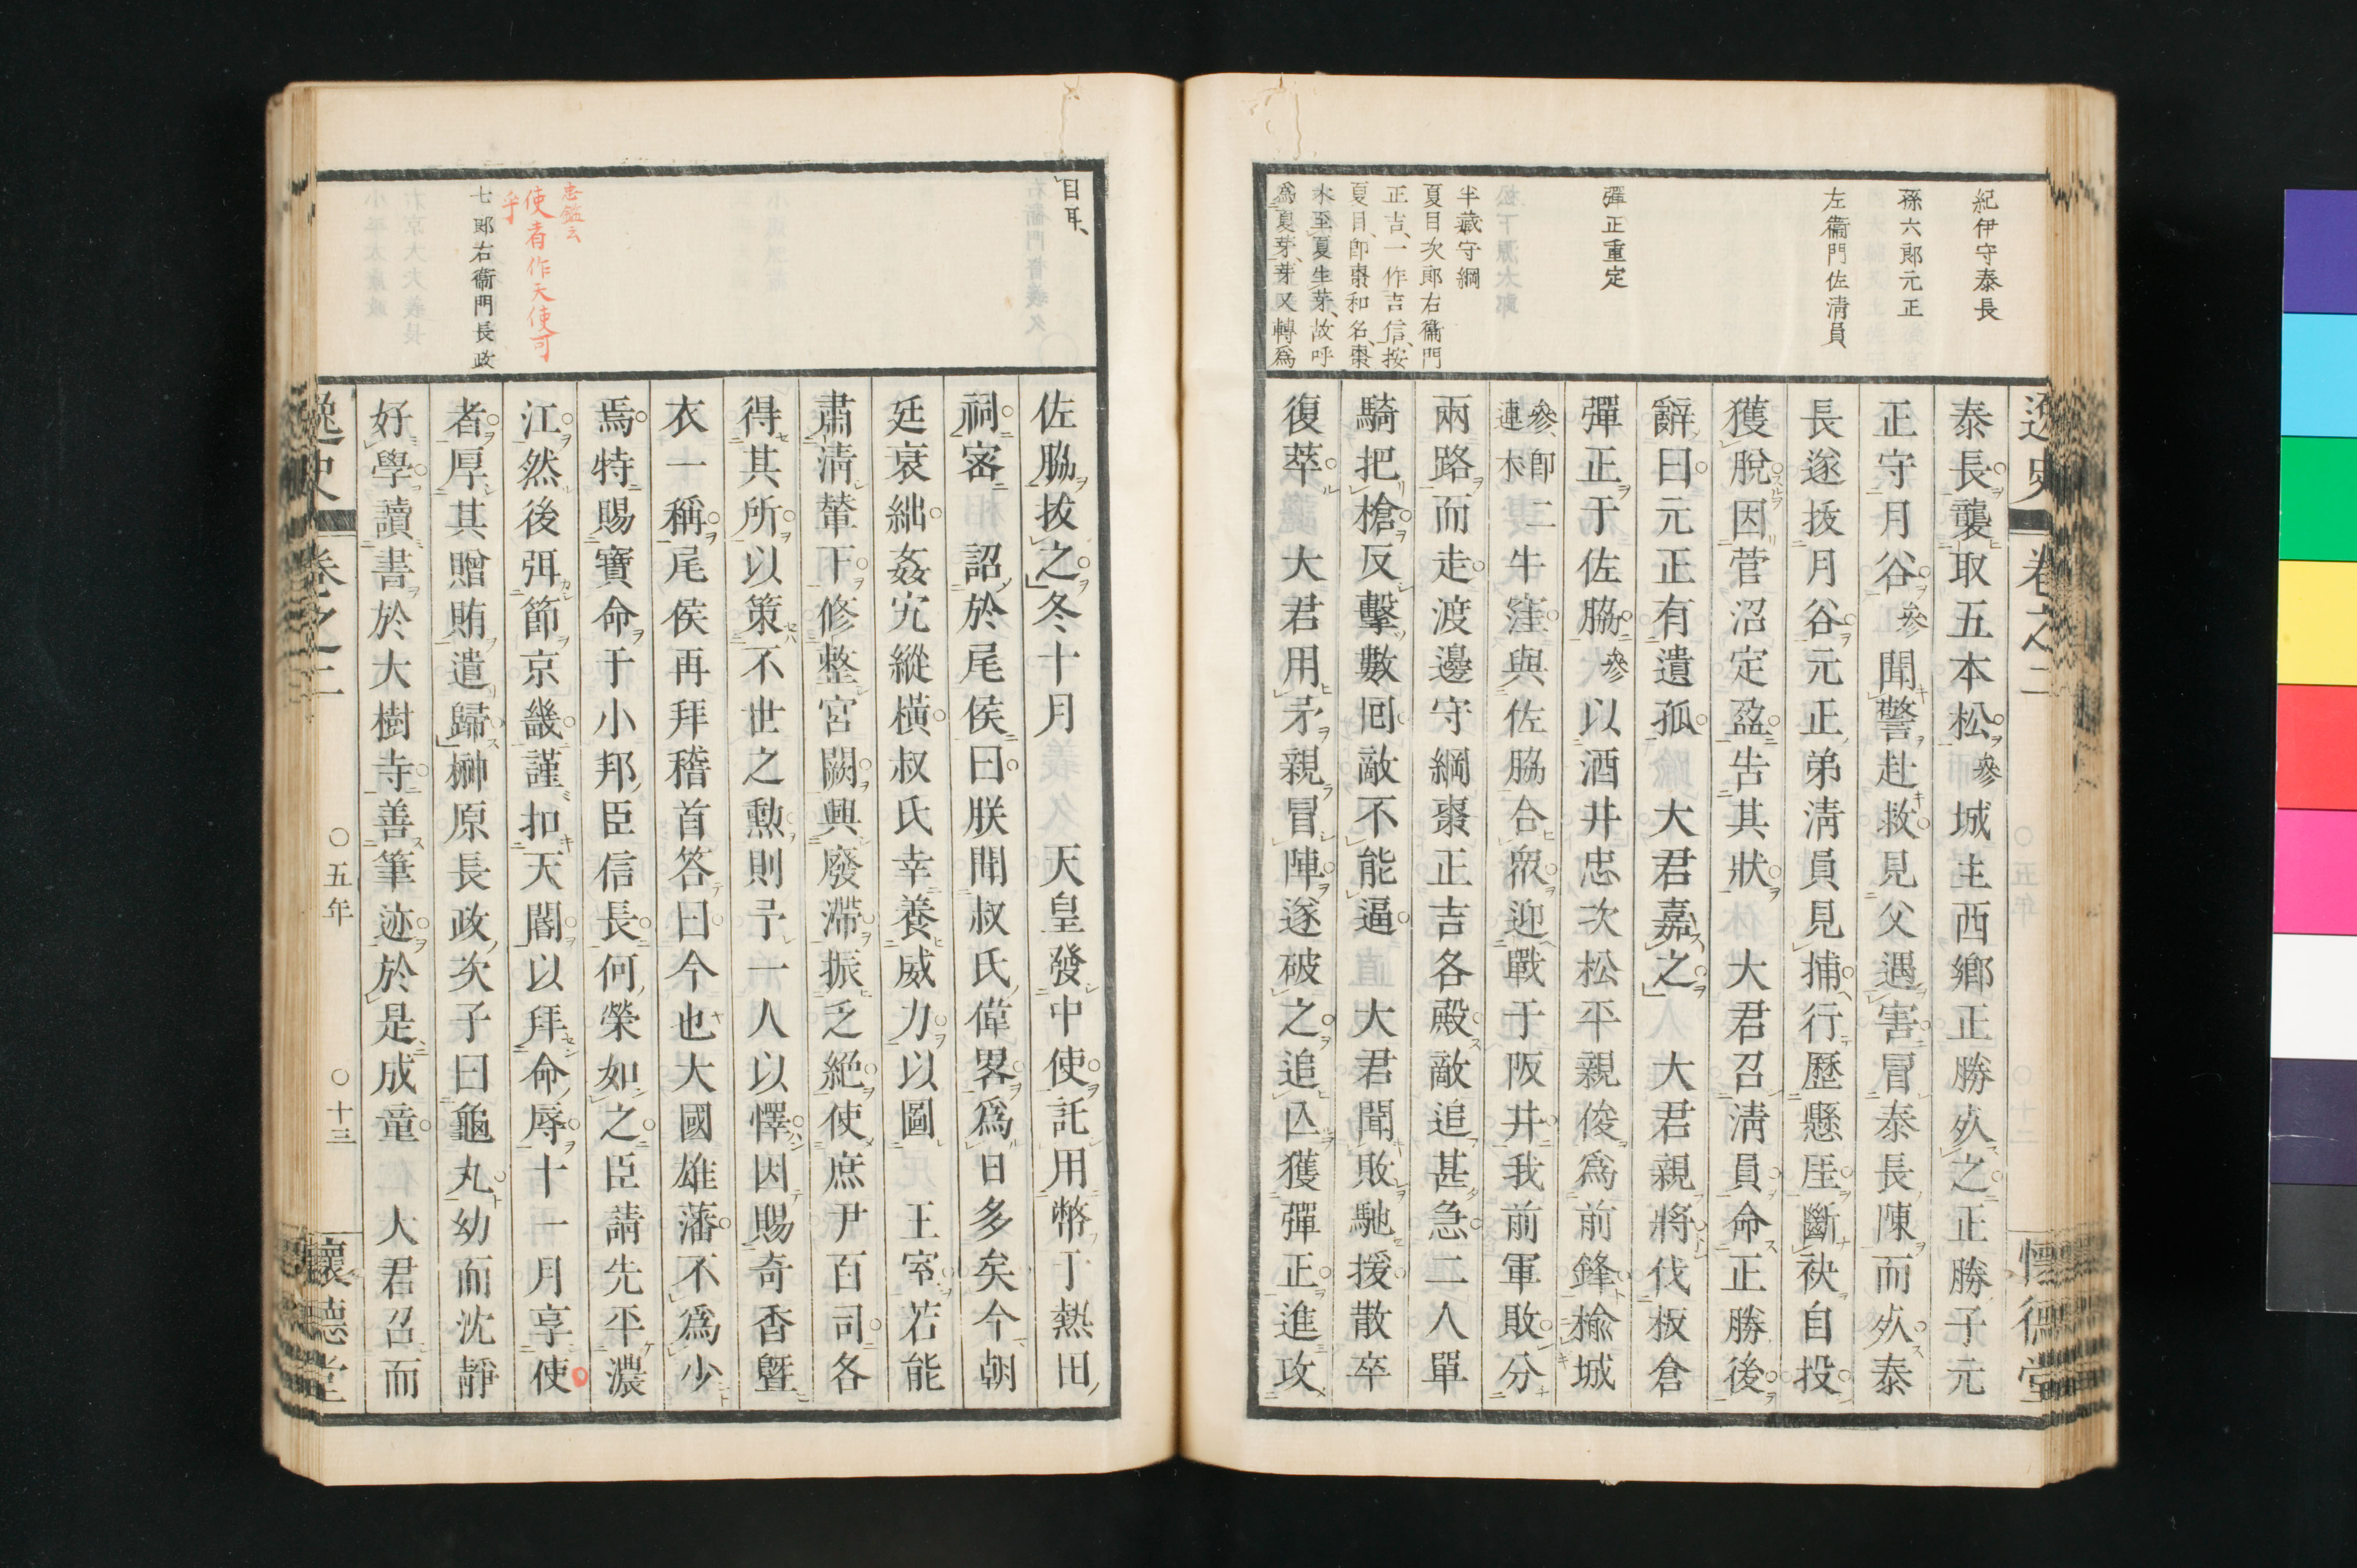 紀伊守泰長
孫六郎元正
左衞門佐淸員
彈正重定
半藏守綱
夏目次郎右衞門
正吉、一作吉信、按
夏目、卽棗和名、棗
木至夏生芽、故呼
爲夏芽、芽又轉爲
逸史
卷之二
懷德堂
泰長襲取五本松參城主西鄕正勝㱕之正勝子元
正守月谷參聞警赴救見父遇害冒泰長陳而㱕泰
長遂拔月谷元正弟淸員見捕行歷懸厓斷袂自投
獲脫因菅沼定盈吿其狀大君召淸員命正勝後
辭曰元正有遺孤大君嘉之大君親將伐板倉
彈正于佐脇參以酒井忠次松平親俊爲前鋒揄城
參、卽二
連木
牛窪與佐脇合衆迎戰于阪井我前軍敗分
兩路而走渡邊守綱棗正吉各殿敵追甚急二人單
騎把槍反擊數回敵不能逼大君聞敗馳援散卒
復萃大君用矛親冒陣遂破之追亾獲彈正進攻
目耳、
忠鑑云
使者作天使可
乎
七郎右衞門長政
佐脇拔之冬十月天皇發中使託用幣于熱田
祠密詔於尾侯曰朕聞叔氏偉畧爲日多矣今朝
廷衰絀姦宄縱橫叔氏幸養威力以圖王室若能
肅淸輦下修整宮闕興廢滯振乏絕使庶尹百司各
得其所以策不世之勳則予一人以懌因賜奇香曁
衣一稱尾侯再拜稽首答曰今也大國雄藩不爲少
焉特賜寶命于小邦臣信長何榮如之臣請先平濃
江然後弭節京畿謹扣天閽以拜命辱十一月享使
者厚其贈賄遣歸榊原長政次子曰龜丸幼而沈靜
好學讀書於大樹寺善筆迹於是成童大君召而
逸史
卷之二
○五年
○十三
懷德堂